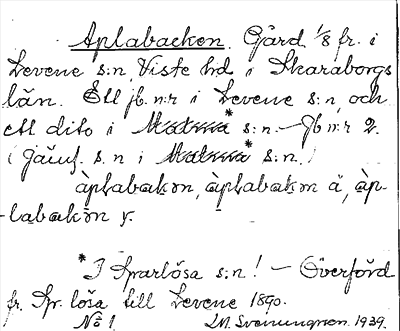 Aplabacken. Gård 1/8 fr. i
Levene s:n, Viste hd i Skaraborgs
län. Ett jb. n:r i Levene s:n, och
ett dito i * s:n. – Jb n:r 2.
(Jämf. s.n i * s:n.)
àplabakən, àplabakən å, àp-
labakən y.
* I Sparlösa s:n! – Överförd
fr. Sp. lösa till Levene 1890.
No 1 M. Svenungson. 1939.